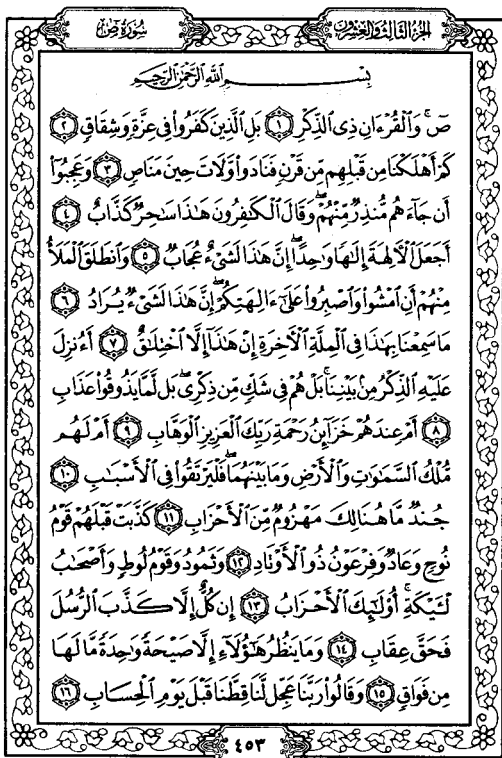 الجزء الثالث والعشرون
سُورَةُ صٓ
بِسۡمِ ٱللَّهِ ٱلرَّحۡمَٰنِ ٱلرَّحِيمِ
صٓۚ وَٱلۡقُرۡءَانِ ذِي ٱلذِّكۡرِ ١ بَلِ ٱلَّذِينَ كَفَرُواْ فِي عِزَّةٖ وَشِقَاقٖ ٢
كَمۡ أَهۡلَكۡنَا مِن قَبۡلِهِم مِّن قَرۡنٖ فَنَادَواْ وَّلَاتَ حِينَ مَنَاصٖ ٣ وَعَجِبُوٓاْ
أَن جَآءَهُم مُّنذِرٞ مِّنۡهُمۡۖ وَقَالَ ٱلۡكَٰفِرُونَ هَٰذَا سَٰحِرٞ كَذَّابٌ ٤
أَجَعَلَ ٱلۡأٓلِهَةَ إِلَٰهٗا وَٰحِدًاۖ إِنَّ هَٰذَا لَشَيۡءٌ عُجَابٞ ٥ وَٱنطَلَقَ ٱلۡمَلَأُ
مِنۡهُمۡ أَنِ ٱمۡشُواْ وَٱصۡبِرُواْ عَلَىٰٓ ءَالِهَتِكُمۡۖ إِنَّ هَٰذَا لَشَيۡءٞ يُرَادُ ٦
مَا سَمِعۡنَا بِهَٰذَا فِي ٱلۡمِلَّةِ ٱلۡأٓخِرَةِ إِنۡ هَٰذَآ إِلَّا ٱخۡتِلَٰقٌ ٧ أَءُنزِلَ
عَلَيۡهِ ٱلذِّكۡرُ مِنۢ بَيۡنِنَاۚ بَلۡ هُمۡ فِي شَكّٖ مِّن ذِكۡرِيۚ بَل لَّمَّا يَذُوقُواْ عَذَابِ
٨ أَمۡ عِندَهُمۡ خَزَآئِنُ رَحۡمَةِ رَبِّكَ ٱلۡعَزِيزِ ٱلۡوَهَّابِ ٩ أَمۡ لَهُم
مُّلۡكُ ٱلسَّمَٰوَٰتِ وَٱلۡأَرۡضِ وَمَا بَيۡنَهُمَاۖ فَلۡيَرۡتَقُواْ فِي ٱلۡأَسۡبَٰبِ ١٠
جُندٞ مَّا هُنَالِكَ مَهۡزُومٞ مِّنَ ٱلۡأَحۡزَابِ ١١ كَذَّبَتۡ قَبۡلَهُمۡ قَوۡمُ
نُوحٖ وَعَادٞ وَفِرۡعَوۡنُ ذُو ٱلۡأَوۡتَادِ ١٢ وَثَمُودُ وَقَوۡمُ لُوطٖ وَأَصۡحَٰبُ
لۡـَٔيۡكَةِۚ أُوْلَٰٓئِكَ ٱلۡأَحۡزَابُ ١٣ إِن كُلٌّ إِلَّا كَذَّبَ ٱلرُّسُلَ
فَحَقَّ عِقَابِ ١٤ وَمَا يَنظُرُ هَٰٓؤُلَآءِ إِلَّا صَيۡحَةٗ وَٰحِدَةٗ مَّا لَهَا
مِن فَوَاقٖ ١٥ وَقَالُواْ رَبَّنَا عَجِّل لَّنَا قِطَّنَا قَبۡلَ يَوۡمِ ٱلۡحِسَابِ ١٦
٤٥٣